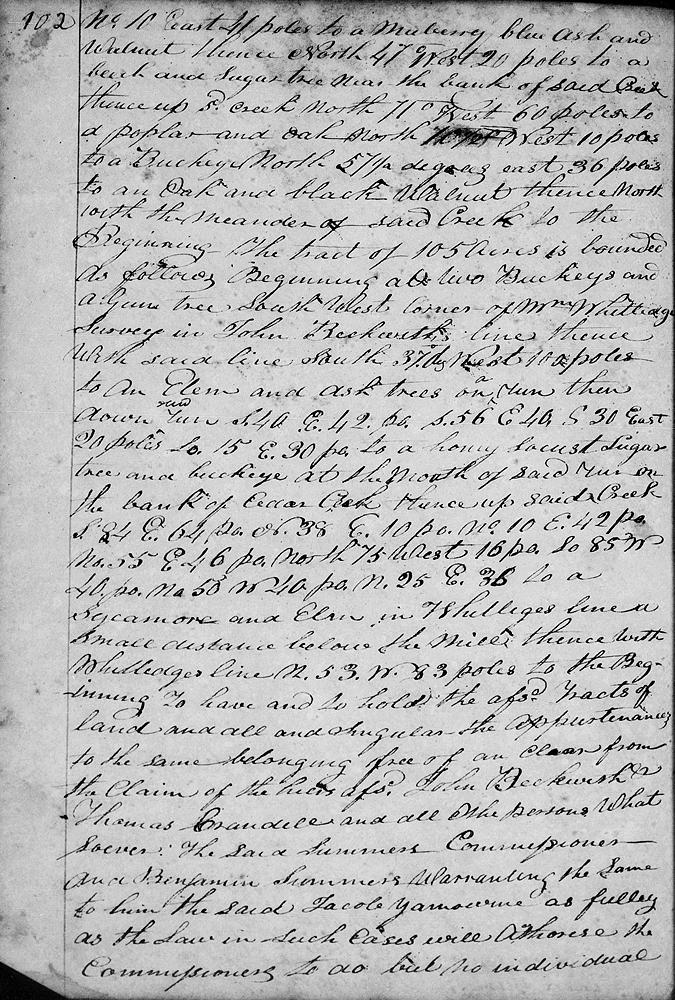 102
No. 10 East 41 poles to a Mulberry blue Ash and
Walnut thence North 47° West 20 poles to a
beech and Sugar tree near the bank of said Creek
thence up sd. creek North 71° West 60 poles to
a poplar and oak North West 10 poles
to a Buckeye North 57½ degrees east 36 poles
to an Oak and black Walnut thence North
with the meander of said Creek to the
Beginning The tract of 105 Acres is bounded
As follows Beginning at two Buckeys and
a Gum tree South West Corner of Wm Whitledge
Survey in John Beckwith's line thence
With said line South 37 West 10 poles
to an Elem and ash trees on a run then
down said run S. 40 E. 42. po. S. 56 E 40. S 30 East
20 poles So. 15 E. 30 po. to a honey locust Sugar
tree and buckeye at the Mouth of said run on
the bank of Cedar Creek thence up said Creek
S. 24 E. 64 po. N. 38 E. 10 po. No. 10 E. 42 po.
No. 55 E 46 po. North 75 West 16 po. So 85 W
40. po. No 50 W 40 po. N. 25 E. 36 to a
Sycamore and Elm in Whitliges line a
Small distance below the Mill thence with
Whitledges line N. 53. W. 83 poles to the Beg-
inning To have and to hold the afsd. Tracts of
land and all and Singular the Appurtenances
to the same belonging free of an clear from
the Claim of the heirs afsd. John Beckwith &
Thomas Crandell and all Othe persons What
soever. The said Summers Commissioner
and Benjamin Summers Warranting the Same
to him the said Jacob Yamowine as fulley
as the Law in such Cases will Athorise the
Commissioners to do but no individual